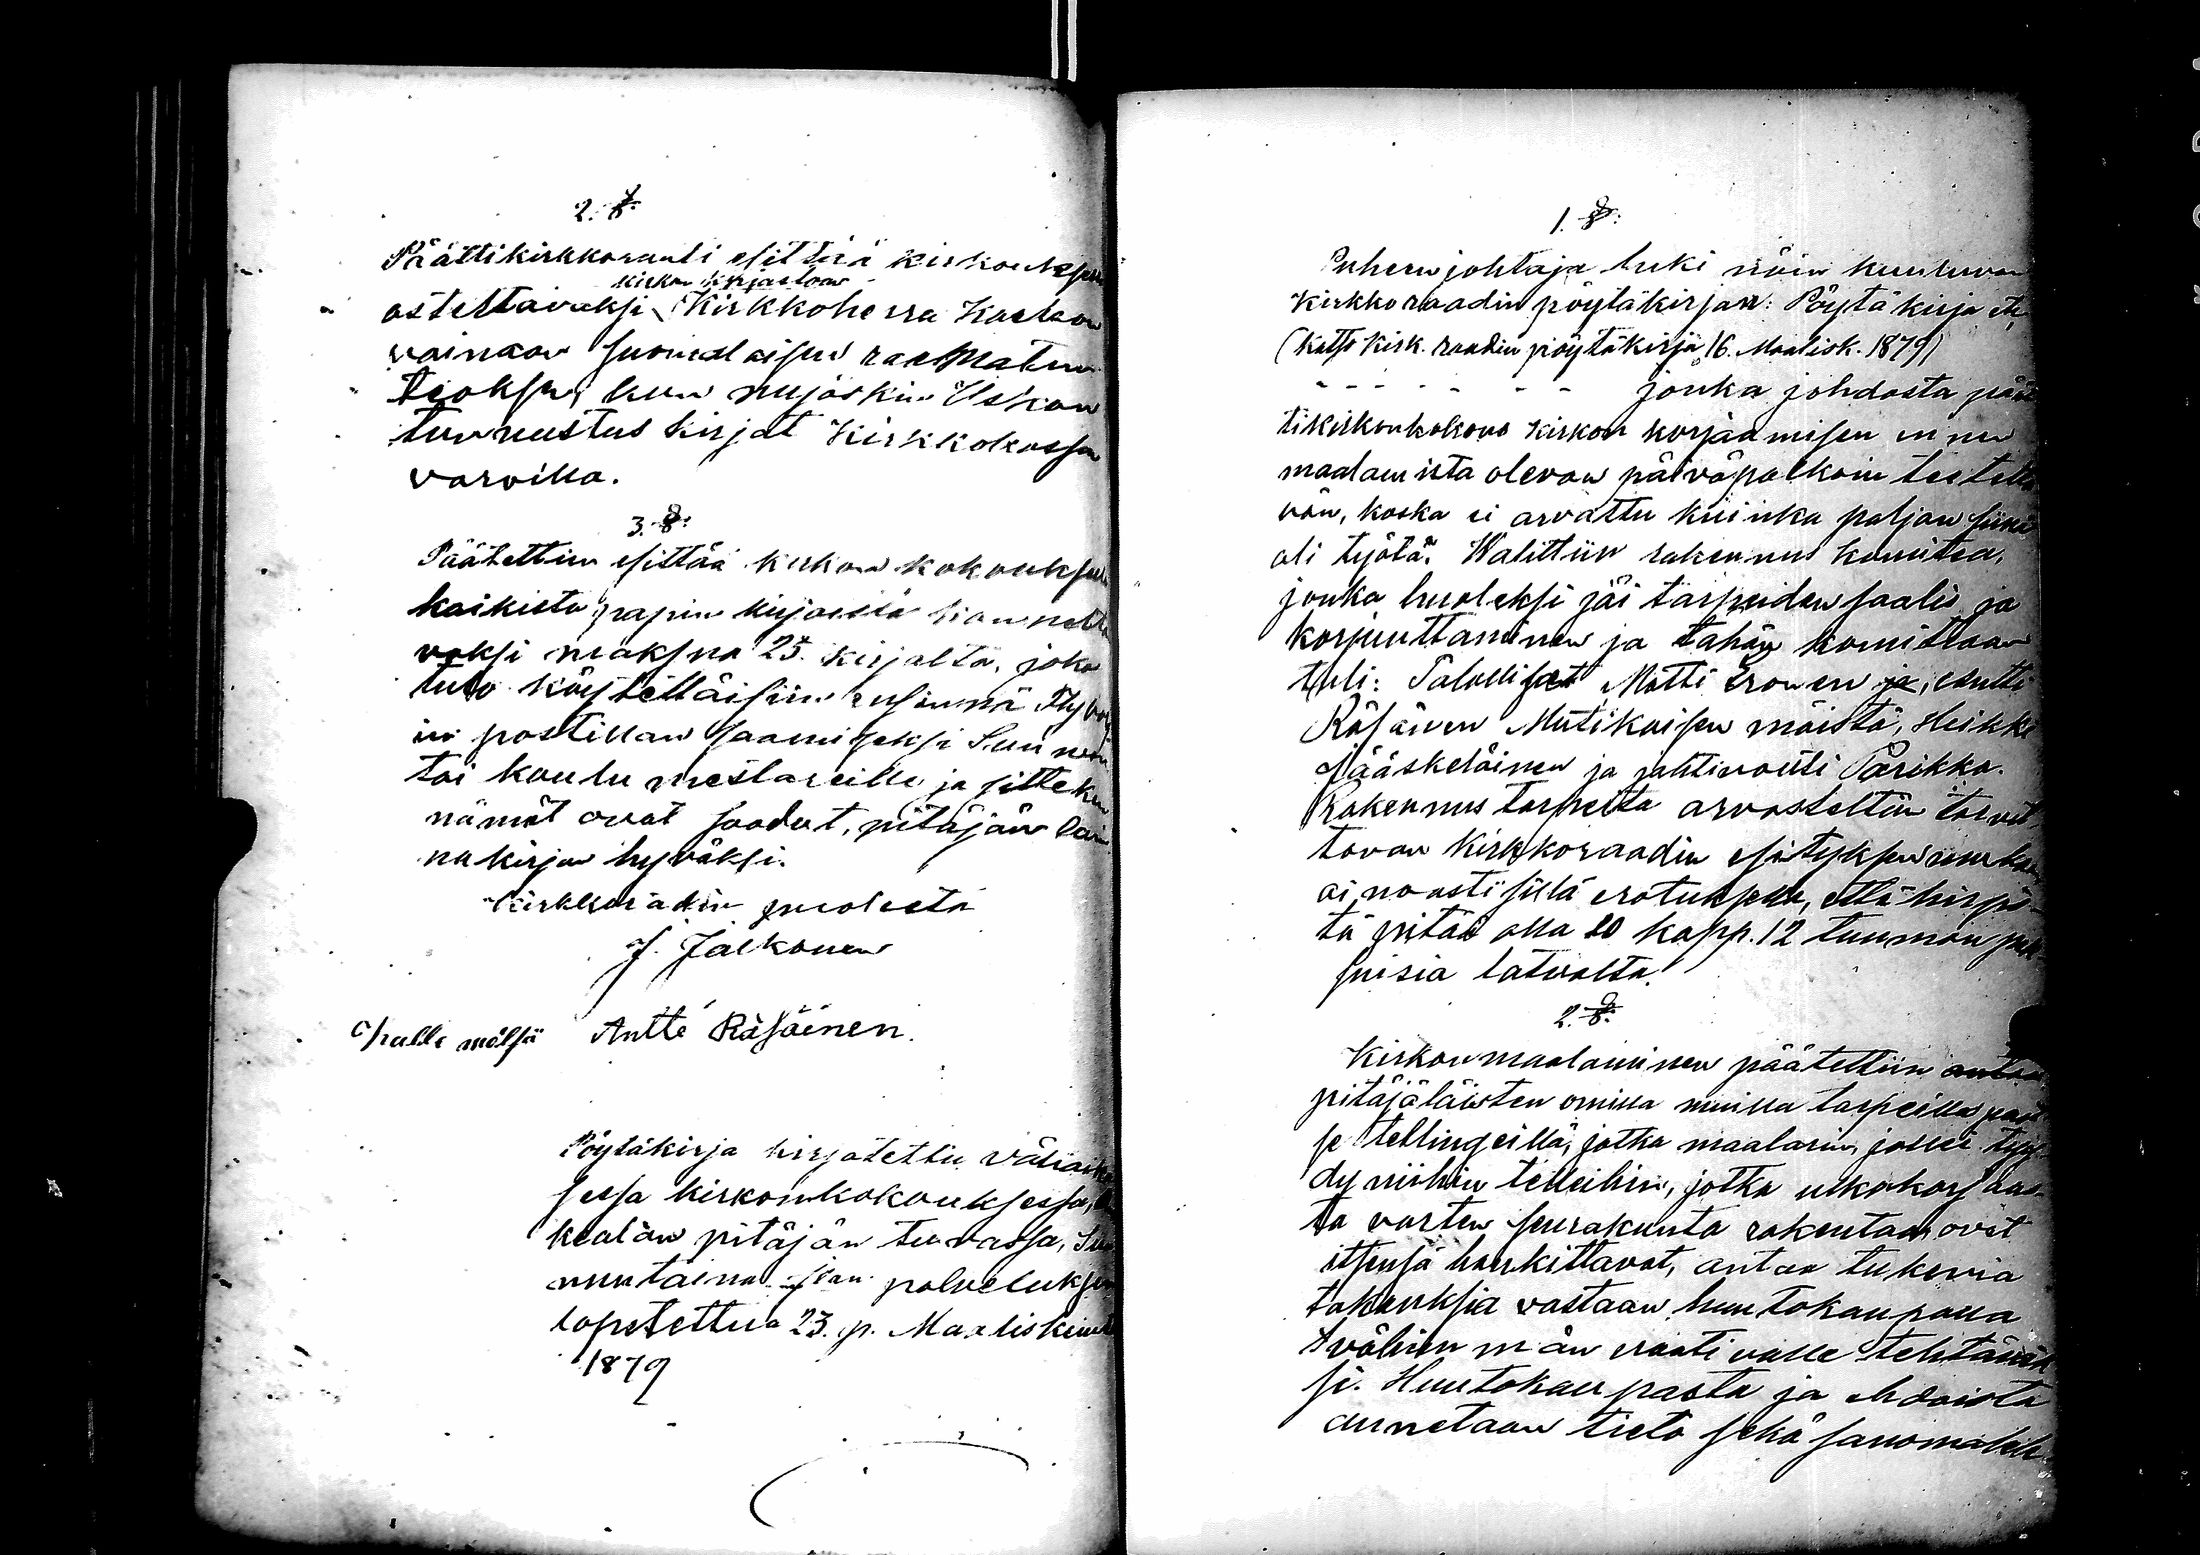 2. §.
Päättikirkkoraati esittää kirkonkokouksen
kirkon kirjastoon
ostettavaksi Kirkkoherra
vainaan suomalaisen raamatun
teoksen, kuin myöskin Uskon
tunnustus kirjat Kirkkokassan
varoilla.
3. §.
Päätettiin esittää kirkon kokouksen
kaikista papin kirjoista
vaksi maksua 25. kirjalta, joka
tulo käytettäisiin
in postillan saamiseksi
tai koulu mestareille ja sitteken
nämät ovat saadut, pitäjän lai
nakirjan hyväksi.
Kirkkoraadin puolesta
J. Jalkonen
Antti Räsäinen.
Pöytäkirja kirjotettu väliaika
sessa kirkonkokouksessa,
pitäjän tuvassa,
nuntaina Jlan. palveluksen
lopetettua 23. p. Maaliskuuta
1879
1. §.
Puheenjohtaja luki näin kuuluvan
kirkkoraadin pöytäkirjan: Pöytäkirja etc,
(katso kirk. raadin pöytäkirja 16. Maalisk. 1879)
- - - - - - - jonka johdosta päät
tikirkonkokous kirkon korjaamisen ennen
maalamista olevan päiväpalkoin teetettä
vän, koska ei arvattu kuinka paljon siinä
oli työtä. Walittiin rakennus komitea,
jonka huoleksi jäi tarpeiden saalis ja
korjuuttaminen ja tähän komiteaan
tuli: Talolliset Matti Eronen ja, Antti
Räsänen Mutikaisen mäistä, Heikki
Jääskeläinen ja jahtivouti Parikka.
Rakennus tarpeita arvosteltiin tarvit
tavan Kirkkoraadin esityksen mukaan
ainoasti sillä erotuksella, että hirsiä
tä pitää olla 20 kapp. 12 tuuman pak
suisia latvalta.
2. §.
Kirkon maalaminen päätettiin antaa
pitäjäläisten omilla muilla tarpeilla paitsi
se tellingeillä, jotka maalarin, jollei tyy
dy niihin telleihin, jotka ulkokorjaus
ta varten seurakunta rakentaa, ovat
itsensä hankittavat, antaa tukevia
takauksia vastaan huutokaupalla
vähimmän vaativalle tehtäväk
si. Huutokaupasta ja ehdoista
annetaan tieto sekä sanomaleh